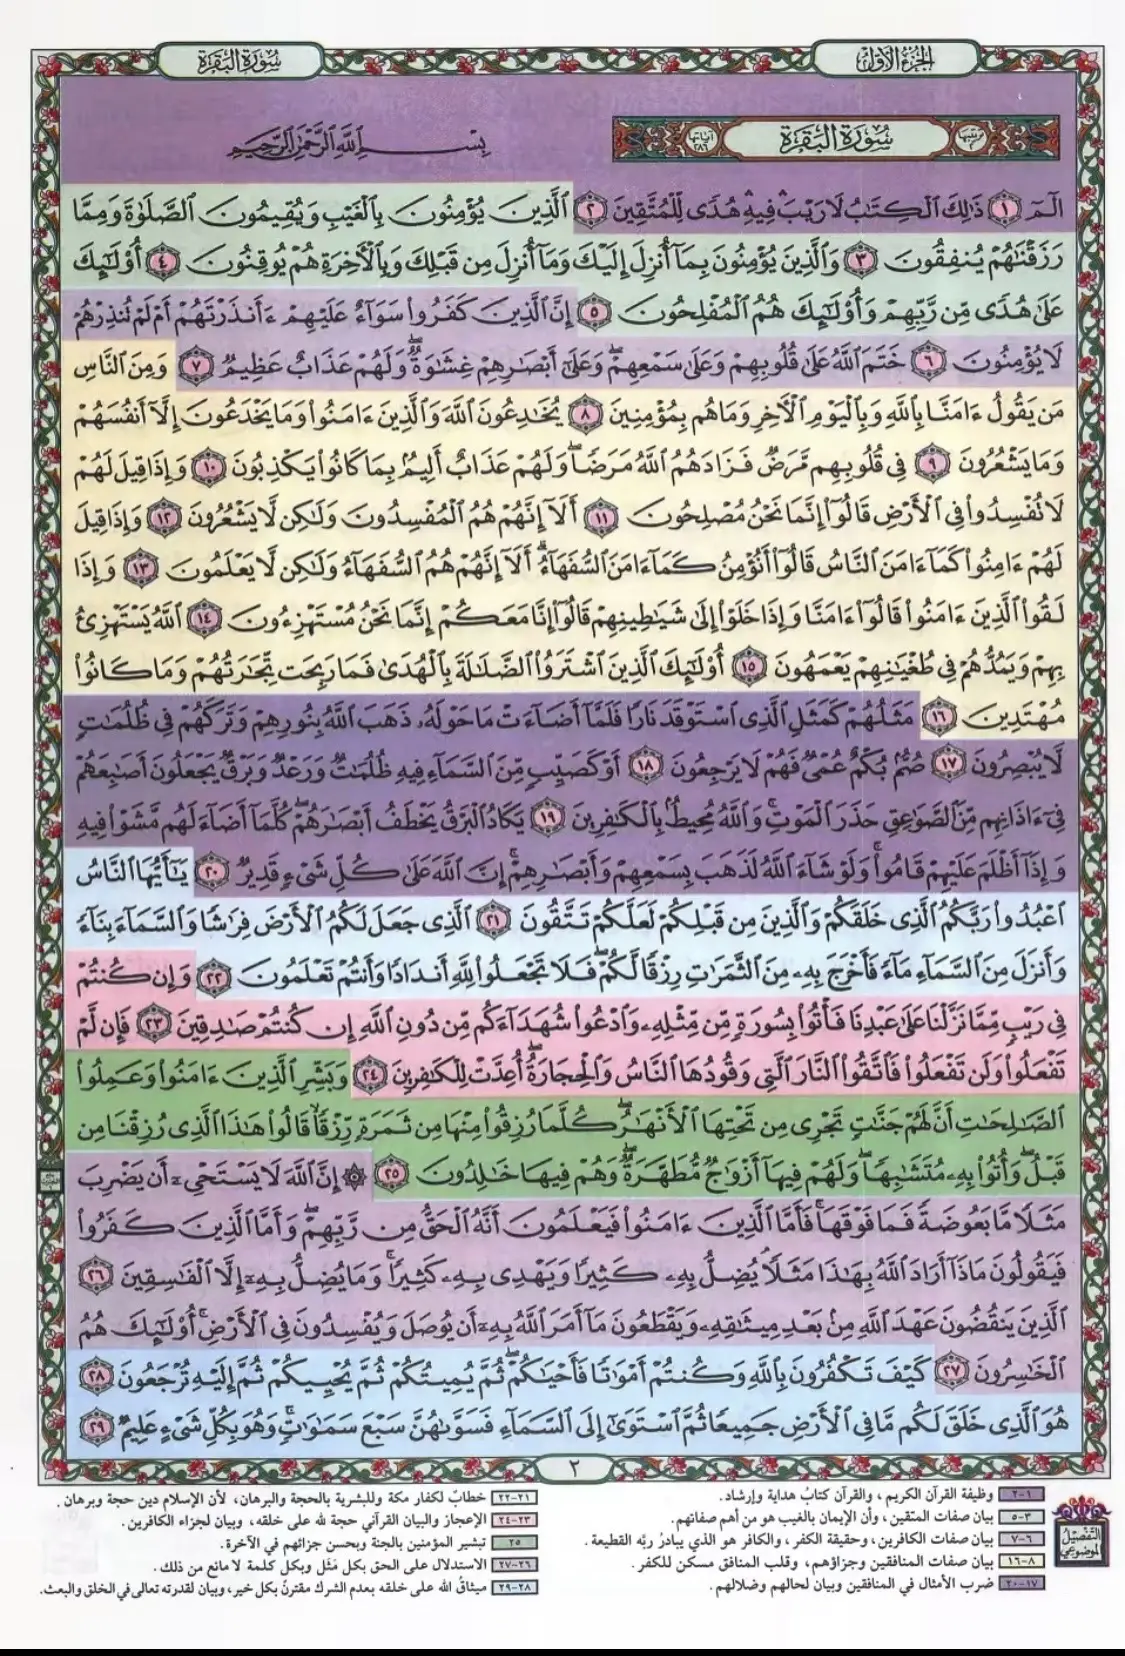 الجزء الأول
سورة البقرة
ترتيبها ٢ سورة البقرة آياتها ٢٨٦
بِسْمِ اللَّهِ الرَّحْمَٰنِ الرَّحِيمِ
الٓمٓ ١ ذَٰلِكَ ٱلْكِتَٰبُ لَا رَيْبَ ۛ فِيهِ ۛ هُدًى لِّلْمُتَّقِينَ ٢ ٱلَّذِينَ يُؤْمِنُونَ بِٱلْغَيْبِ وَيُقِيمُونَ ٱلصَّلَوٰةَ وَمِمَّا
رَزَقْنَٰهُمْ يُنفِقُونَ ٣ وَٱلَّذِينَ يُؤْمِنُونَ بِمَآ أُنزِلَ إِلَيْكَ وَمَآ أُنزِلَ مِن قَبْلِكَ وَبِٱلْأَخِرَةِ هُمْ يُوقِنُونَ ٤ أُو۟لَٰٓئِكَ
عَلَىٰ هُدًى مِّن رَّبِّهِمْ وَأُو۟لَٰٓئِكَ هُمُ ٱلْمُفْلِحُونَ ٥ إِنَّ ٱلَّذِينَ كَفَرُوا۟ سَوَآءٌ عَلَيْهِمْ ءَأَنذَرْتَهُمْ أَمْ لَمْ تُنذِرْهُمْ
لَا يُؤْمِنُونَ ٦ خَتَمَ ٱللَّهُ عَلَىٰ قُلُوبِهِمْ وَعَلَىٰ سَمْعِهِمْ ۖ وَعَلَىٰٓ أَبْصَٰرِهِمْ غِشَٰوَةٌ ۖ وَلَهُمْ عَذَابٌ عَظِيمٌ ٧ وَمِنَ ٱلنَّاسِ
مَن يَقُولُ ءَامَنَّا بِٱللَّهِ وَبِٱلْيَوْمِ ٱلْأَخِرِ وَمَا هُم بِمُؤْمِنِينَ ٨ يُخَٰدِعُونَ ٱللَّهَ وَٱلَّذِينَ ءَامَنُوا۟ وَمَا يَخْدَعُونَ إِلَّآ أَنفُسَهُمْ
وَمَا يَشْعُرُونَ ٩ فِى قُلُوبِهِم مَّرَضٌ فَزَادَهُمُ ٱللَّهُ مَرَضًا ۖ وَلَهُمْ عَذَابٌ أَلِيمٌۢ بِمَا كَانُوا۟ يَكْذِبُونَ ١٠ وَإِذَا قِيلَ لَهُمْ
لَا تُفْسِدُوا۟ فِى ٱلْأَرْضِ قَالُوٓا۟ إِنَّمَا نَحْنُ مُصْلِحُونَ ١١ أَلَآ إِنَّهُمْ هُمُ ٱلْمُفْسِدُونَ وَلَٰكِن لَّا يَشْعُرُونَ ١٢ وَإِذَا قِيلَ
لَهُمْ ءَامِنُوا۟ كَمَآ ءَامَنَ ٱلنَّاسُ قَالُوٓا۟ أَنُؤْمِنُ كَمَآ ءَامَنَ ٱلسُّفَهَآءُ ۗ أَلَآ إِنَّهُمْ هُمُ ٱلسُّفَهَآءُ وَلَٰكِن لَّا يَعْلَمُونَ ١٣ وَإِذَا
لَقُوا۟ ٱلَّذِينَ ءَامَنُوا۟ قَالُوٓا۟ ءَامَنَّا وَإِذَا خَلَوْا۟ إِلَىٰ شَيَٰطِينِهِمْ قَالُوٓا۟ إِنَّا مَعَكُمْ إِنَّمَا نَحْنُ مُسْتَهْزِءُونَ ١٤ ٱللَّهُ يَسْتَهْزِئُ
بِهِمْ وَيَمُدُّهُمْ فِى طُغْيَٰنِهِمْ يَعْمَهُونَ ١٥ أُو۟لَٰٓئِكَ ٱلَّذِينَ ٱشْتَرَوُا۟ ٱلضَّلَٰلَةَ بِٱلْهُدَىٰ فَمَا رَبِحَت تِّجَٰرَتُهُمْ وَمَا كَانُوا۟
مُهْتَدِينَ ١٦ مَثَلُهُمْ كَمَثَلِ ٱلَّذِى ٱسْتَوْقَدَ نَارًا فَلَمَّآ أَضَآءَتْ مَا حَوْلَهُۥ ذَهَبَ ٱللَّهُ بِنُورِهِمْ وَتَرَكَهُمْ فِى ظُلُمَٰتٍ
لَّا يُبْصِرُونَ ١٧ صُمٌّۢ بُكْمٌ عُمْىٌ فَهُمْ لَا يَرْجِعُونَ ١٨ أَوْ كَصَيِّبٍ مِّنَ ٱلسَّمَآءِ فِيهِ ظُلُمَٰتٌ وَرَعْدٌ وَبَرْقٌ يَجْعَلُونَ أَصَٰبِعَهُمْ
فِىٓ ءَاذَانِهِم مِّنَ ٱلصَّوَٰعِقِ حَذَرَ ٱلْمَوْتِ ۚ وَٱللَّهُ مُحِيطٌۢ بِٱلْكَٰفِرِينَ ١٩ يَكَادُ ٱلْبَرْقُ يَخْطَفُ أَبْصَٰرَهُمْ ۖ كُلَّمَآ أَضَآءَ لَهُم مَّشَوْا۟ فِيهِ
وَإِذَآ أَظْلَمَ عَلَيْهِمْ قَامُوا۟ ۚ وَلَوْ شَآءَ ٱللَّهُ لَذَهَبَ بِسَمْعِهِمْ وَأَبْصَٰرِهِمْ ۚ إِنَّ ٱللَّهَ عَلَىٰ كُلِّ شَىْءٍ قَدِيرٌ ٢٠ يَٰٓأَيُّهَا ٱلنَّاسُ
ٱعْبُدُوا۟ رَبَّكُمُ ٱلَّذِى خَلَقَكُمْ وَٱلَّذِينَ مِن قَبْلِكُمْ لَعَلَّكُمْ تَتَّقُونَ ٢١ ٱلَّذِى جَعَلَ لَكُمُ ٱلْأَرْضَ فِرَٰشًا وَٱلسَّمَآءَ بِنَآءً
وَأَنزَلَ مِنَ ٱلسَّمَآءِ مَآءً فَأَخْرَجَ بِهِۦ مِنَ ٱلثَّمَرَٰتِ رِزْقًا لَّكُمْ ۖ فَلَا تَجْعَلُوا۟ لِلَّهِ أَندَادًا وَأَنتُمْ تَعْلَمُونَ ٢٢ وَإِن كُنتُمْ
فِى رَيْبٍ مِّمَّا نَزَّلْنَا عَلَىٰ عَبْدِنَا فَأْتُوا۟ بِسُورَةٍ مِّن مِّثْلِهِۦ وَٱدْعُوا۟ شُهَدَآءَكُم مِّن دُونِ ٱللَّهِ إِن كُنتُمْ صَٰدِقِينَ ٢٣ فَإِن لَّمْ
تَفْعَلُوا۟ وَلَن تَفْعَلُوا۟ فَٱتَّقُوا۟ ٱلنَّارَ ٱلَّتِى وَقُودُهَا ٱلنَّاسُ وَٱلْحِجَارَةُ ۖ أُعِدَّتْ لِلْكَٰفِرِينَ ٢٤ وَبَشِّرِ ٱلَّذِينَ ءَامَنُوا۟ وَعَمِلُوا۟
ٱلصَّٰلِحَٰتِ أَنَّ لَهُمْ جَنَّٰتٍ تَجْرِى مِن تَحْتِهَا ٱلْأَنْهَٰرُ ۖ كُلَّمَا رُزِقُوا۟ مِنْهَا مِن ثَمَرَةٍ رِّزْقًا ۙ قَالُوا۟ هَٰذَا ٱلَّذِى رُزِقْنَا مِن
قَبْلُ ۖ وَأُتُوا۟ بِهِۦ مُتَشَٰبِهًا ۖ وَلَهُمْ فِيهَآ أَزْوَٰجٌ مُّطَهَّرَةٌ ۖ وَهُمْ فِيهَا خَٰلِدُونَ ٢٥ ۞ إِنَّ ٱللَّهَ لَا يَسْتَحْىِۦٓ أَن يَضْرِبَ
مَثَلًا مَّا بَعُوضَةً فَمَا فَوْقَهَا ۚ فَأَمَّا ٱلَّذِينَ ءَامَنُوا۟ فَيَعْلَمُونَ أَنَّهُ ٱلْحَقُّ مِن رَّبِّهِمْ ۖ وَأَمَّا ٱلَّذِينَ كَفَرُوا۟
فَيَقُولُونَ مَاذَآ أَرَادَ ٱللَّهُ بِهَٰذَا مَثَلًا ۘ يُضِلُّ بِهِۦ كَثِيرًا وَيَهْدِى بِهِۦ كَثِيرًا ۚ وَمَا يُضِلُّ بِهِۦٓ إِلَّا ٱلْفَٰسِقِينَ ٢٦
ٱلَّذِينَ يَنقُضُونَ عَهْدَ ٱللَّهِ مِنۢ بَعْدِ مِيثَٰقِهِۦ وَيَقْطَعُونَ مَآ أَمَرَ ٱللَّهُ بِهِۦٓ أَن يُوصَلَ وَيُفْسِدُونَ فِى ٱلْأَرْضِ ۚ أُو۟لَٰٓئِكَ هُمُ
ٱلْخَٰسِرُونَ ٢٧ كَيْفَ تَكْفُرُونَ بِٱللَّهِ وَكُنتُمْ أَمْوَٰتًا فَأَحْيَٰكُمْ ۖ ثُمَّ يُمِيتُكُمْ ثُمَّ يُحْيِيكُمْ ثُمَّ إِلَيْهِ تُرْجَعُونَ ٢٨
هُوَ ٱلَّذِى خَلَقَ لَكُم مَّا فِى ٱلْأَرْضِ جَمِيعًا ثُمَّ ٱسْتَوَىٰٓ إِلَى ٱلسَّمَآءِ فَسَوَّىٰهُنَّ سَبْعَ سَمَٰوَٰتٍ ۚ وَهُوَ بِكُلِّ شَىْءٍ عَلِيمٌ ٢٩
٢
التفصيل الموضوعي
١-٢ وظيفة القرآن الكريم ، والقرآن كتابُ هداية وإرشاد.
٣-٥ بيان صفات المتقين، وأن الإيمان بالغيب هو من أهم صفاتهم.
٦-٧ بيان صفات الكافرين، وحقيقة الكفر، والكافر هو الذي يبادرُ ربَّه القطيعة .
٨-١٦ بيان صفات المنافقين وجزاؤهم، وقلب المنافق مسكن للكفر.
١٧-٢٠ ضرب الأمثال في المنافقين وبيان لحالهم وضلالهم.
٢١-٢٢ خطابٌ لكفار مكة وللبشرية بالحجة والبرهان، لأن الإسلام دين حجة وبرهان .
٢٣-٢٤ الإعجاز والبيان القرآني حجة لله على خلقه، وبيان لجزاء الكافرين.
٢٥ تبشير المؤمنين بالجنة وبحسن جزائهم في الآخرة.
٢٦-٢٧ الاستدلال على الحق بكل مَثَل وبكل كلمة لا مانع من ذلك.
٢٨-٢٩ ميثاقُ الله على خلقه بعدم الشرك مقترنٌ بكل خير، وبيان لقدرته تعالى في الخلق والبعث.